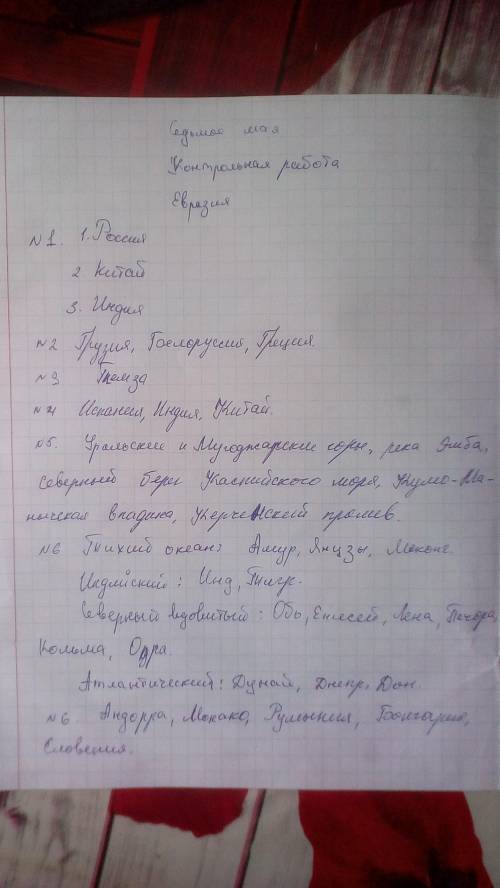 Седьмое мая
Контрольная работа
Евразия
№1. 1. Россия
2 Китай
3. Индия
№2 Грузия, Белоруссия, Греция.
№3 Темза
№4 Испания, Индия, Китай.
№5. Уральские и Мугоджарские горы, река Эмба,
северный берег Каспийского моря, Кумо-Ма-
нычская впадина, Керченский пролив.
№6 Тихий океан: Амур, Янцзы, Меконг.
Индийский: Инд, Тигр.
Северный Ледовитый: Обь, Енисей, Лена, Печора,
Колыма,
Атлантический: Дунай, Днепр, Дон.
№6. Андорра, Монако, Румыния, Болгария,
Словения.